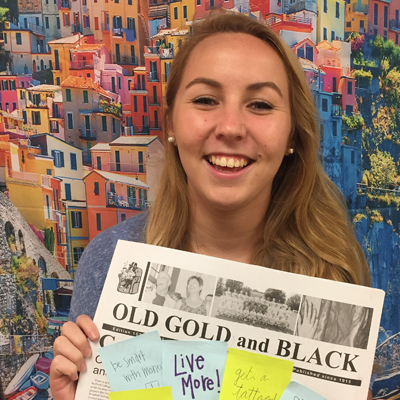 OLD GOLD and BLACK
Published since 1915
be smart
with money
Live
More!
get a
tattoo!